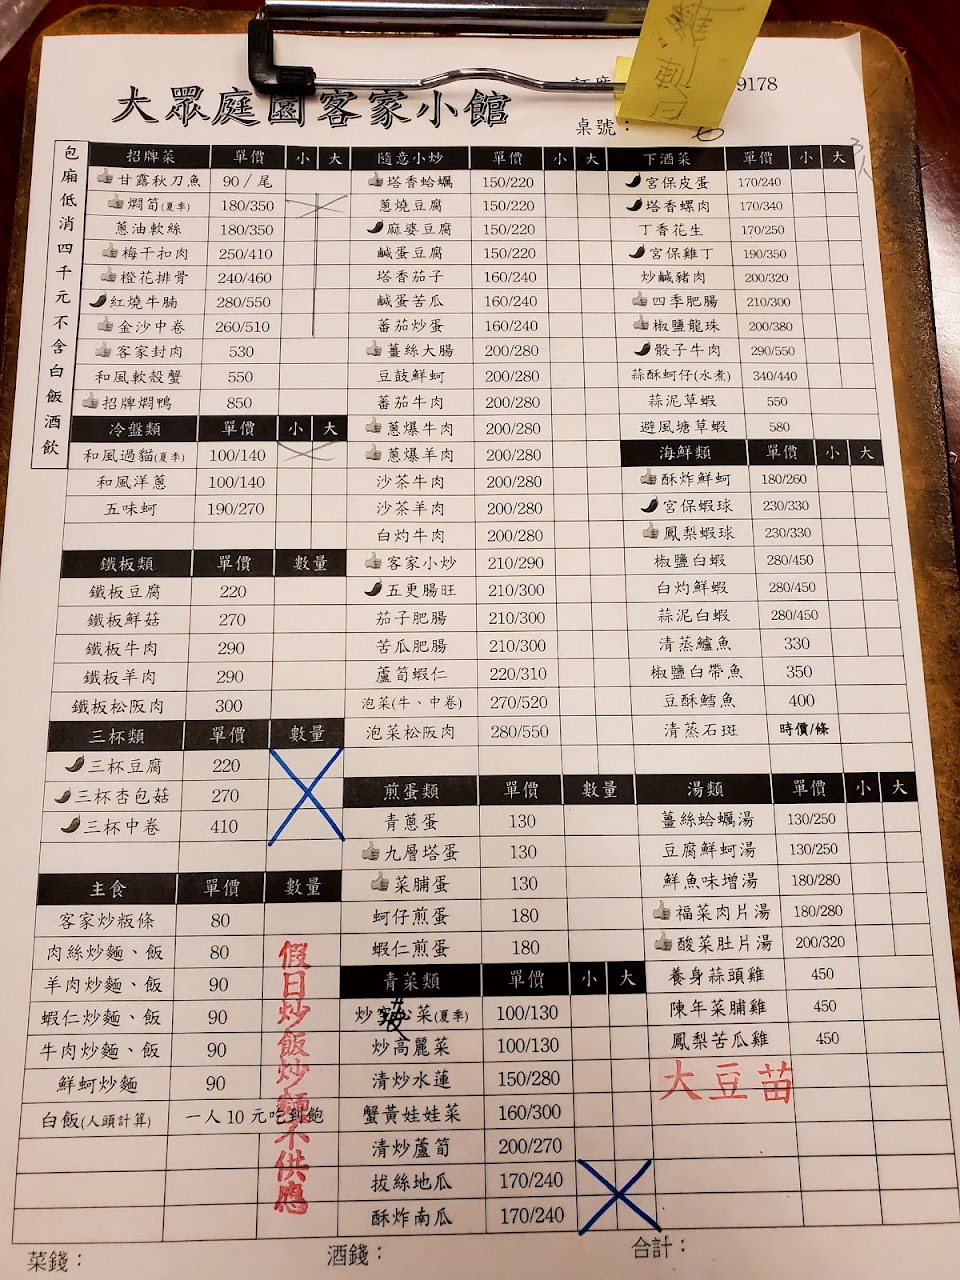 9178
大眾庭園客家小館
桌號：
包廂低消四千元不含白飯酒飲
招牌菜 單價 小 大
甘露秋刀魚 90／尾
燜筍(夏季) 180/350
蔥油軟絲 180/350
梅干扣肉 250/410
橙花排骨 240/460
紅燒牛腩 280/550
金沙中卷 260/510
客家封肉 530
和風軟殼蟹 550
招牌燜鴨 850
冷盤類 單價 小 大
和風過貓(夏季) 100/140
和風洋蔥 100/140
五味蚵 190/270
鐵板類 單價 數量
鐵板豆腐 220
鐵板鮮菇 270
鐵板牛肉 290
鐵板羊肉 290
鐵板松阪肉 300
三杯類 單價 數量
三杯豆腐 220
三杯杏包菇 270
三杯中卷 410
主食 單價 數量
客家炒粄條 80
肉絲炒麵、飯 80
羊肉炒麵、飯 90
蝦仁炒麵、飯 90
牛肉炒麵、飯 90
鮮蚵炒麵 90
白飯(人頭計算) 一人10元吃到飽
假日炒飯炒麵不供應
隨意小炒 單價 小 大
塔香蛤蠣 150/220
蔥燒豆腐 150/220
麻婆豆腐 150/220
鹹蛋豆腐 150/220
塔香茄子 160/240
鹹蛋苦瓜 160/240
蕃茄炒蛋 160/240
薑絲大腸 200/280
豆鼓鮮蚵 200/280
蕃茄牛肉 200/280
蔥爆牛肉 200/280
蔥爆羊肉 200/280
沙茶牛肉 200/280
沙茶羊肉 200/280
白灼牛肉 200/280
客家小炒 210/290
五更腸旺 210/300
茄子肥腸 210/300
苦瓜肥腸 210/300
蘆筍蝦仁 220/310
泡菜(牛、中卷) 270/520
泡菜松阪肉 280/550
煎蛋類 單價 數量
青蔥蛋 130
九層塔蛋 130
菜脯蛋 130
蚵仔煎蛋 180
蝦仁煎蛋 180
青菜類 單價 小 大
炒菜(夏季) 100/130
炒高麗菜 100/130
清炒水蓮 150/280
蟹黃娃娃菜 160/300
清炒蘆筍 200/270
拔絲地瓜 170/240
酥炸南瓜 170/240
下酒菜 單價 小 大
宮保皮蛋 170/240
塔香螺肉 170/340
丁香花生 170/250
宮保雞丁 190/350
炒鹹豬肉 200/320
四季肥腸 210/300
椒鹽龍珠 200/380
骰子牛肉 290/550
蒜酥蚵仔(水煮) 340/440
蒜泥草蝦 550
避風塘草蝦 580
海鮮類 單價 小 大
酥炸鮮蚵 180/260
宮保蝦球 230/330
鳳梨蝦球 230/330
椒鹽白蝦 280/450
白灼鮮蝦 280/450
蒜泥白蝦 280/450
清蒸鱸魚 330
椒鹽白帶魚 350
豆酥鱈魚 400
清蒸石斑 時價/條
湯類 單價 小 大
薑絲蛤蠣湯 130/250
豆腐鮮蚵湯 130/250
鮮魚味增湯 180/280
福菜肉片湯 180/280
酸菜肚片湯 200/320
養身蒜頭雞 450
陳年菜脯雞 450
鳳梨苦瓜雞 450
大豆苗
菜錢：
酒錢：
合計：